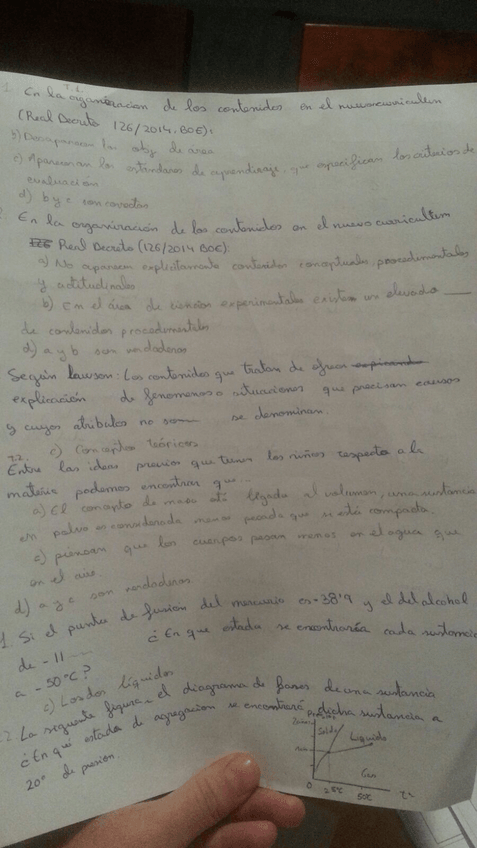 T.1.
1. En la organización de los contenidos en el nuevo curriculum
(Real Decreto 126/2014, BOE):
b) Desaparecen los obj de área
c) Aparecen los estandares de aprendizaje, que especifican los criterios de
evaluación
d) b y c son correctas
En la organización de los contenidos en el nuevo curriculum
Real Decreto (126/2014 BOE):
a) No aparecen explícitamente contenidos conceptuales, procedimentales
y actitudinales
b) En el área de ciencias experimentales existe un elevado ___
de contenidos procedimentales
d) a y b son verdaderas
Según Lawson: Los contenidos que tratan de ofrecer
explicación de fenomenos o situaciones que precisan causas
y cuyos atributos no son — se denominan.
c) Conceptos teóricos
T.2.
Entre las ideas previas que tienen los niños respecto a la
materia podemos encontrar que...
a) El concepto de masa está ligado al volumen, una sustancia
en polvo es considerada menos pesada que si está compacta.
c) piensan que los cuerpos pesan menos en el agua que
en el aire.
d) a y c son verdaderas
1. Si el punto de fusión del mercurio es -38'9 y el del alcohol
de -11 ---- ¿En que estado se encontraría cada sustancia
a -50ºC?
c) Los dos líquidos
2 La siguiente figura, el diagrama de fases de una sustancia
¿En qué estado de agregación se encontrará dicha sustancia a
20º de presión.
Solido
Liquido
Gas
0 25ºC 50ºC Tª